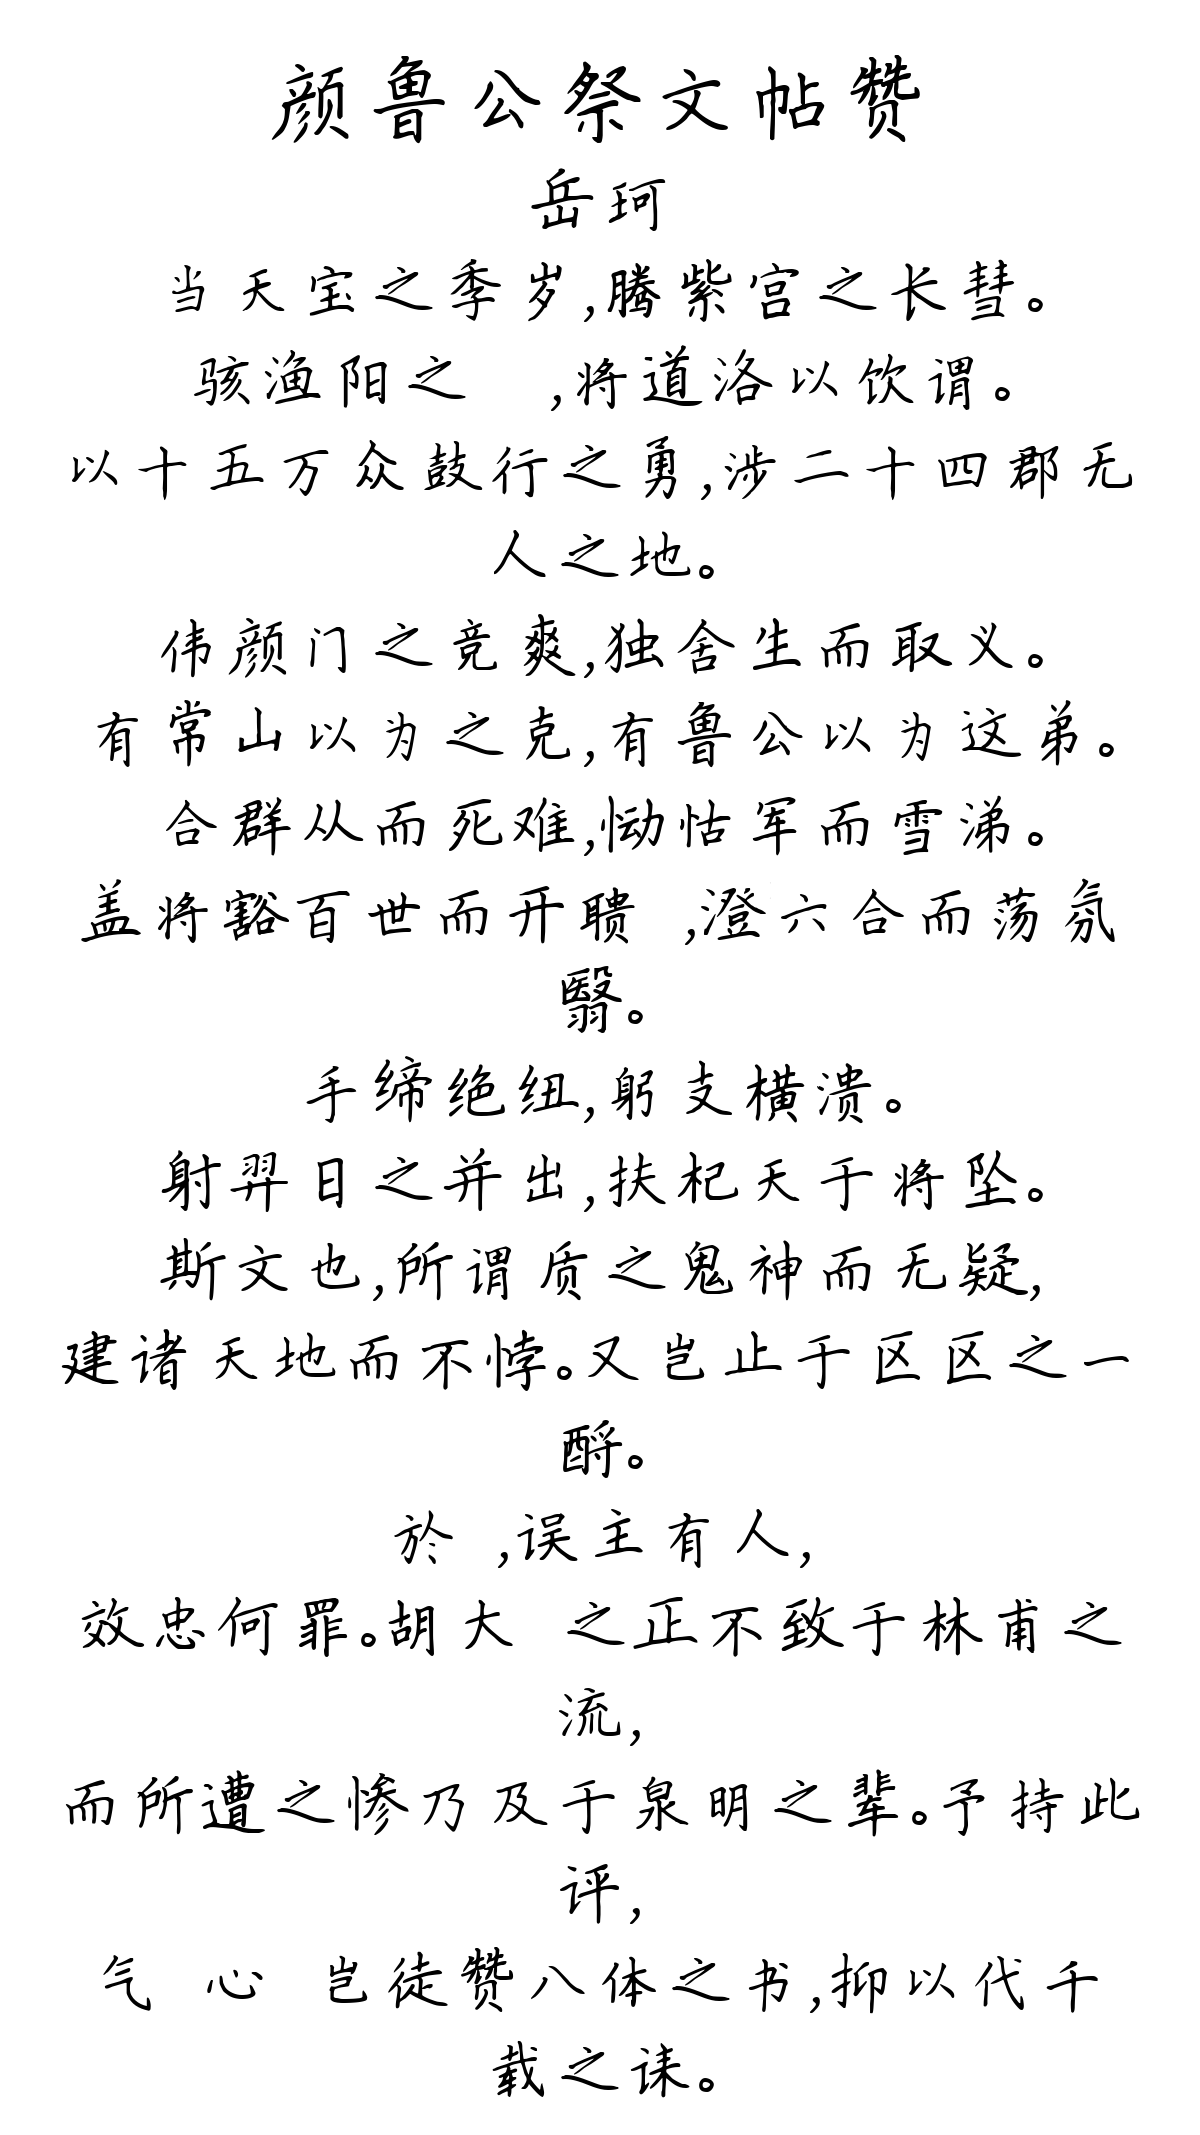 颜鲁公祭文帖赞
岳珂
当天宝之季岁,腾紫宫之长彗。
骇渔阳之 ,将道洛以饮谓。
以十五万众鼓行之勇,涉二十四郡无
人之地。
伟颜门之竞爽,独舍生而取义。
有常山以为之克,有鲁公以为这弟。
合群从而死难,恸怙军而雪涕。
盖将豁百世而开聩 ,澄六合而荡氛
翳。
手缔绝纽,躬支横溃。
射羿日之并出,扶杞天于将坠。
斯文也,所谓质之鬼神而无疑,
建诸天地而不悖。又岂止于区区之一
酹。
於 ,误主有人,
效忠何罪。胡大 之正不致于林甫之
流,
而所遭之惨乃及于泉明之辈。予持此
评,
气 心 岂徒赞八体之书,抑以代千
载之诔。